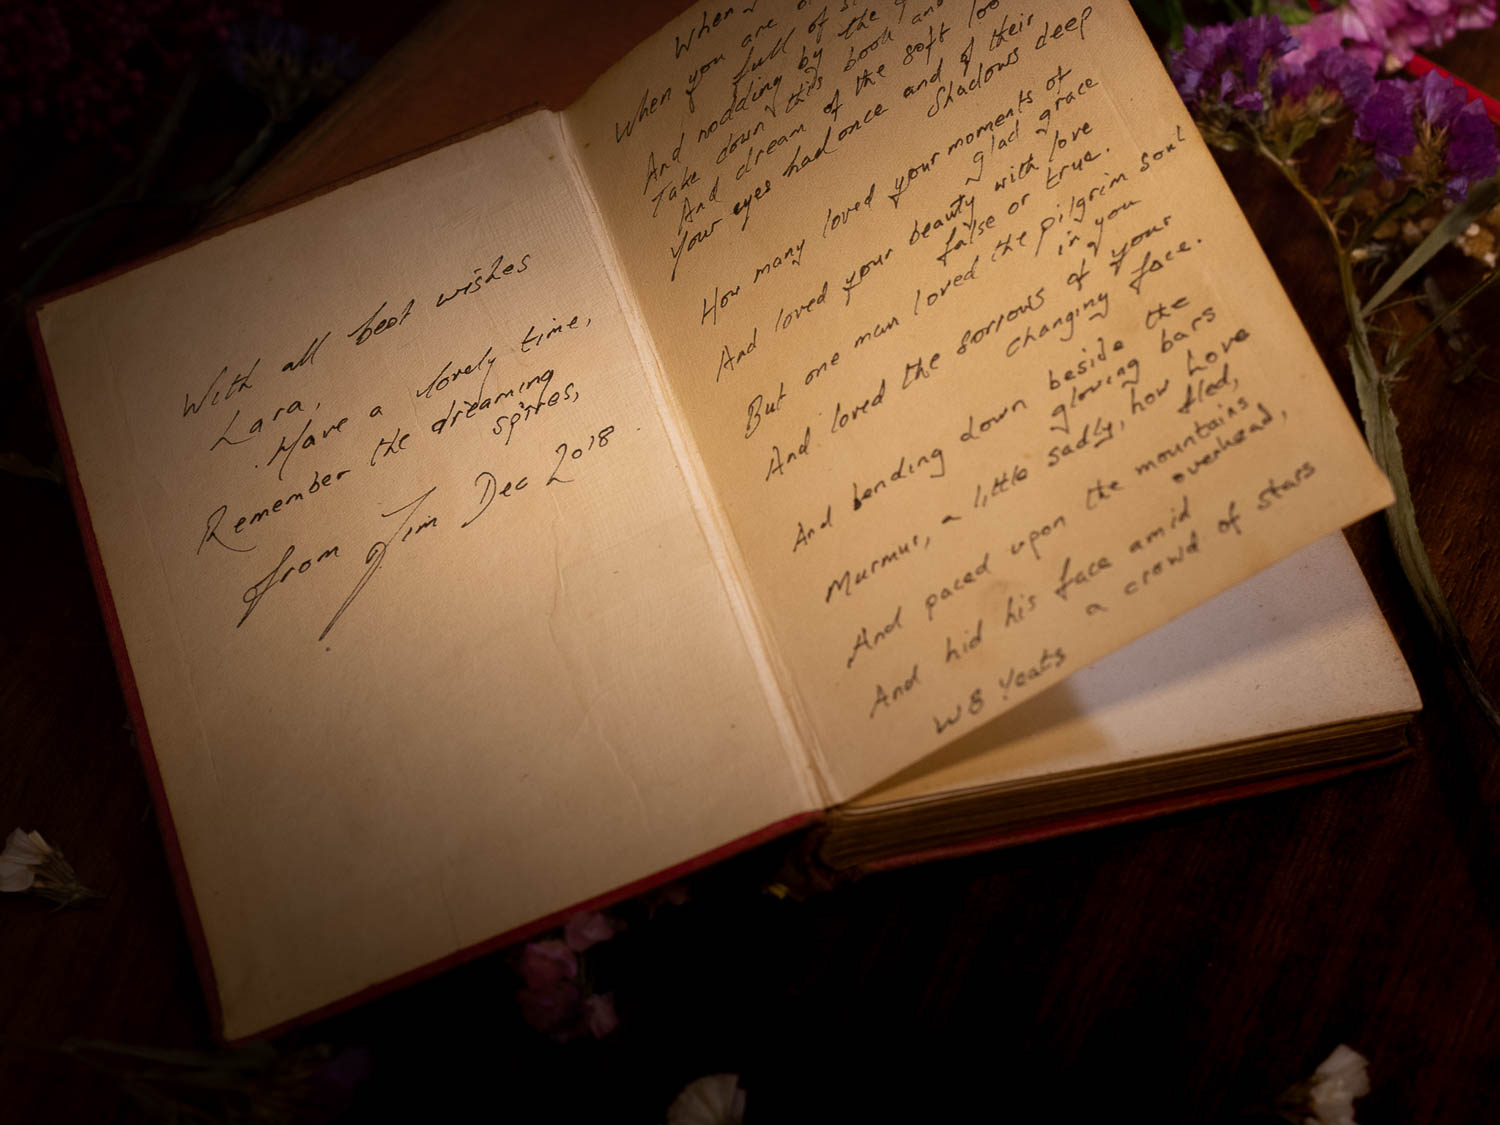 With all best wishes
Lara,
Have a lovely time,
Remember the dreaming
spires,
from Jim Dec 2018.
When
When you are
full of
And nodding by the
Take down this book and
And dream of the soft
Your eyes had once and of their
Shadows deep
How many loved your moments of
glad grace
And loved your beauty with love
false or true.
But one man loved the pilgrim soul
in you
And loved the sorrows of your
changing face.
And bending down beside the
glowing bars
Murmur, a little sadly, how Love
fled,
And paced upon the mountains
overhead,
And hid his face amid
a crowd of stars
W B Yeats